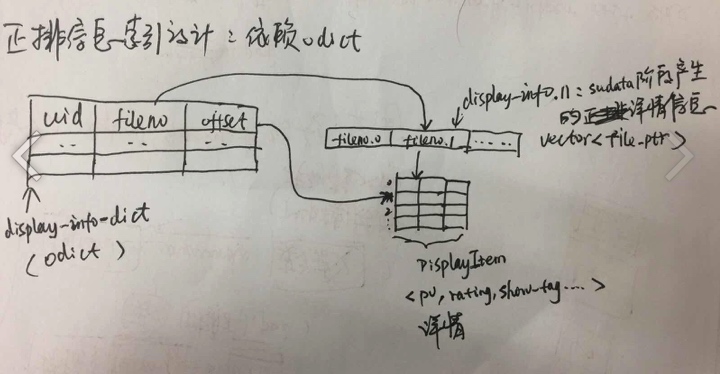 正排信息索引设计：依赖odict
uid fileno offset
.. .. ..
display-info-dict
(odict)
display-info.n：sudata阶段产生
的正排详情信息
vector<file-ptr>
fileno.0 fileno.1 ......
0
1
2
:
DisplayItem
<pv, rating, show-tag....>
详情